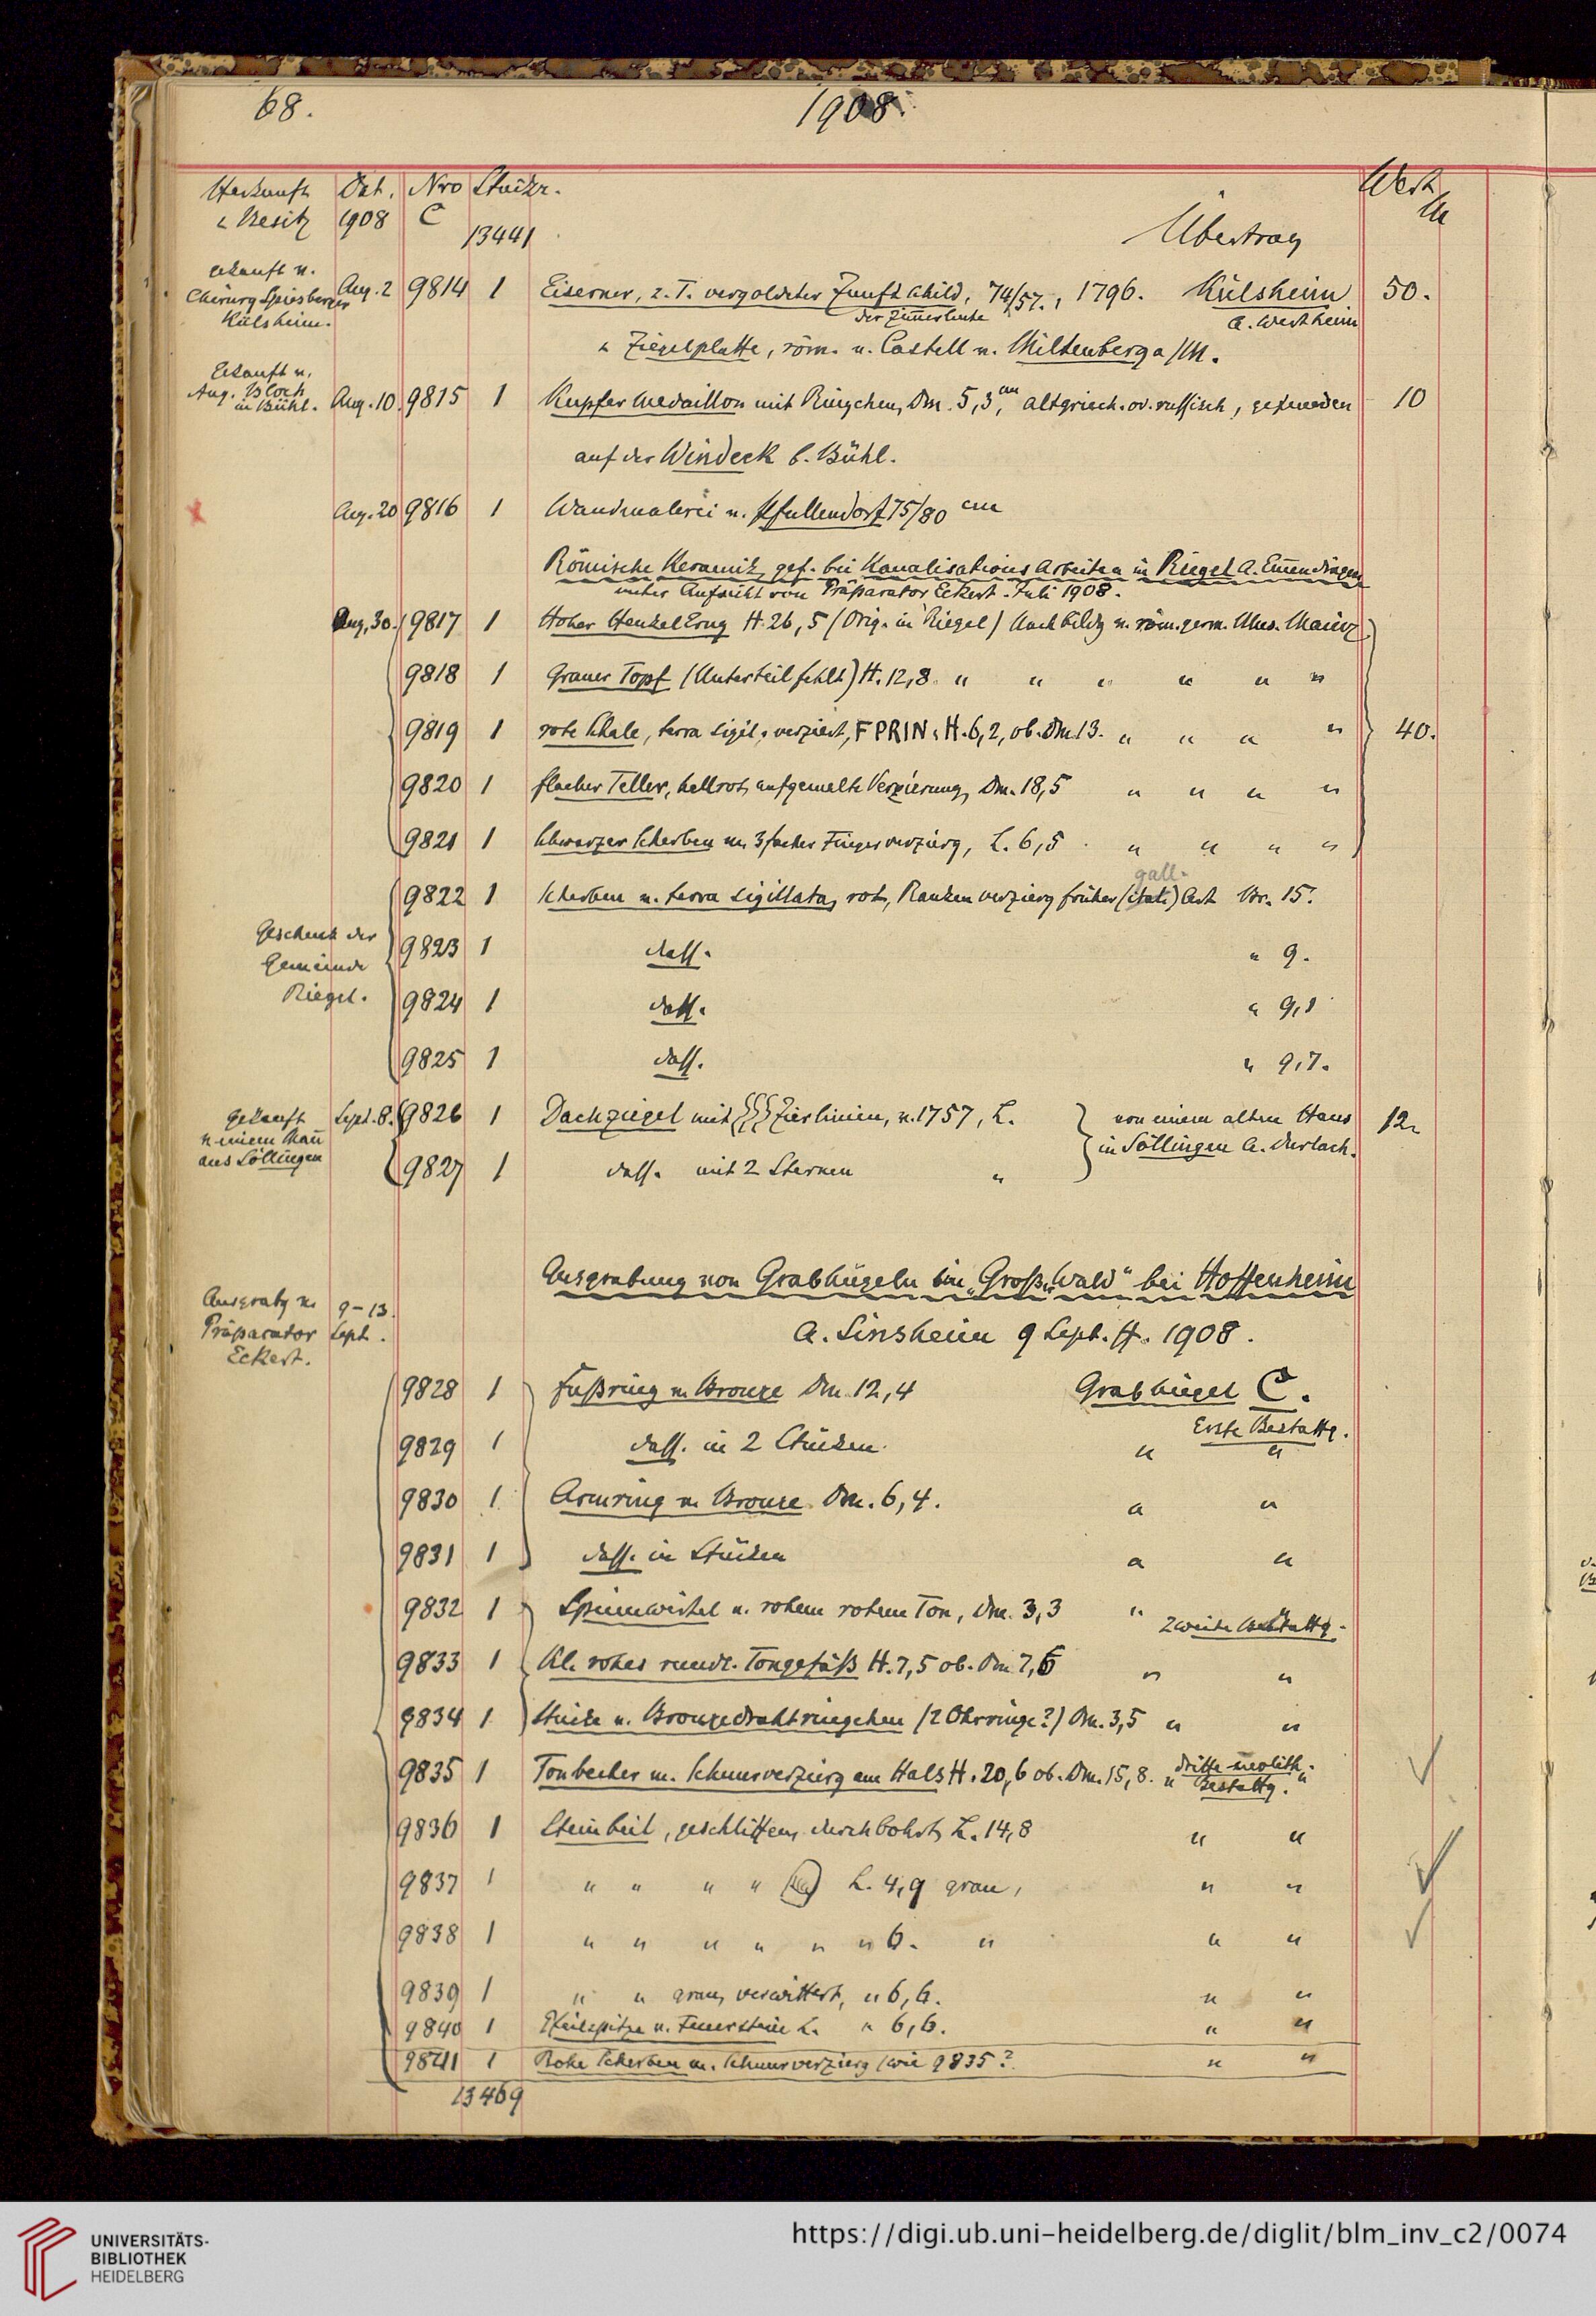 68. 1908.
Herkunft Dat. Nro Stückz. Wert
u Besitz 1908 C M
13441 Übertrag
gekauft v.
Chirurg Spiesberger Aug. 2 9814 1 Eiserner, z. T. vergoldeter Zunftschild, 74/57., 1796. Külsheim 50.
Külsheim. der Zimmerleute A. Wertheim
u Ziegelplatte, röm. v. Castell v. Miltenberg a/M.
Gekauft v.
Aug. Bloch
in Bühl. Aug. 10. 9815 1 Kupfermedaillon mit Ringchen, Dm. 5,3 cm, altgriech. od. russisch, gefunden 10
auf der Windeck b. Bühl.
Aug. 20 9816 1 Wandmalerei v. Pfullendorf 75/80 cm
Römische Keramik, gef. bei Kanalisations Arbeiten in Riegel A. Emmendingen
unter Aufsicht von Präparator Eckert. Juli 1908.
Aug. 30. 9817 1 Hoher Henkelkrug H. 26,5 (Orig. in Riegel) Nachbildg v. röm. germ. Mus. Mainz
9818 1 Grauer Topf (Unterteil fehlt) H. 12,8. " " " " " "
9819 1 rote Schale, terra sigil., verziert, F PRIN, H. 6,2, ob. Dm. 13. " " " " 40.
9820 1 flacher Teller, hellrot, aufgemalte Verzierung, Dm. 18,5 " " " "
9821 1 Schwarzer Scherben m. 3facher Fingerverzierg, L. 6,5 " " " "
gall.
9822 1 Scherben v. terra sigillata, rot, Rankenverzierg früher (ital.) Art Br. 15.
Geschenk der
Gemeinde
Riegel.
9823 1 dass. " 9.
9824 1 dass. " 9,8
9825 1 dass. " 9,7.
Gekauft Sept. 8. 9826 1 Dachziegel mit Zierlinien, v. 1757, L. von einem alten Haus 12
v einem Mann
aus Söllingen in Söllingen A. Durlach.
9827 1 dass. mit 2 Sternen "
Ausgrabung von Grabhügeln im „Großen Wald" bei Hoffenheim
Ausgrabg v. 9-13. A. Sinsheim 9 Sept. ff. 1908.
Präparator Sept.
Eckert.
9828 1 Fußring v. Bronze Dm. 12,4 Grabhügel C.
Erste Bestattg.
9829 1 dass. in 2 Stücken. " "
9830 1 Armring v. Bronze. Dm. 6,4. " "
9831 1 dass. in Stücken " "
9832 1 Spinnwirtel v. rohem rotem Ton, Dm. 3,3 " Zweite Bestattg.
9833 1 Kl. rohes rundl. Tongefäß H. 7,5 ob. Dm 7,6 " "
9834 1 Stücke v. Bronzedrahtringchen (2 Ohrringe?) Dm. 3,5 " "
9835 1 Tonbecher m. Schnurverzierg am Hals H. 20,6 ob. Dm. 15,8. " dritte neolith. Bestattg. "
9836 1 Steinbeil, geschliffen, durchbohrt, L. 14,8 " "
9837 1 " " " " L. 4,9 grau, " "
9838 1 " " " " " " 6. " " "
9839 1 " " grau, verwittert, " 6,6. " "
9840 1 Pfeilspitze v. Feuerstein L. " 6,6. " "
9841 1 Rohe Scherben m. Schnurverzierg (wie 9835? " "
13469
UNIVERSITÄTS-
BIBLIOTHEK
HEIDELBERG
https://digi.ub.uni-heidelberg.de/diglit/blm_inv_c2/0074